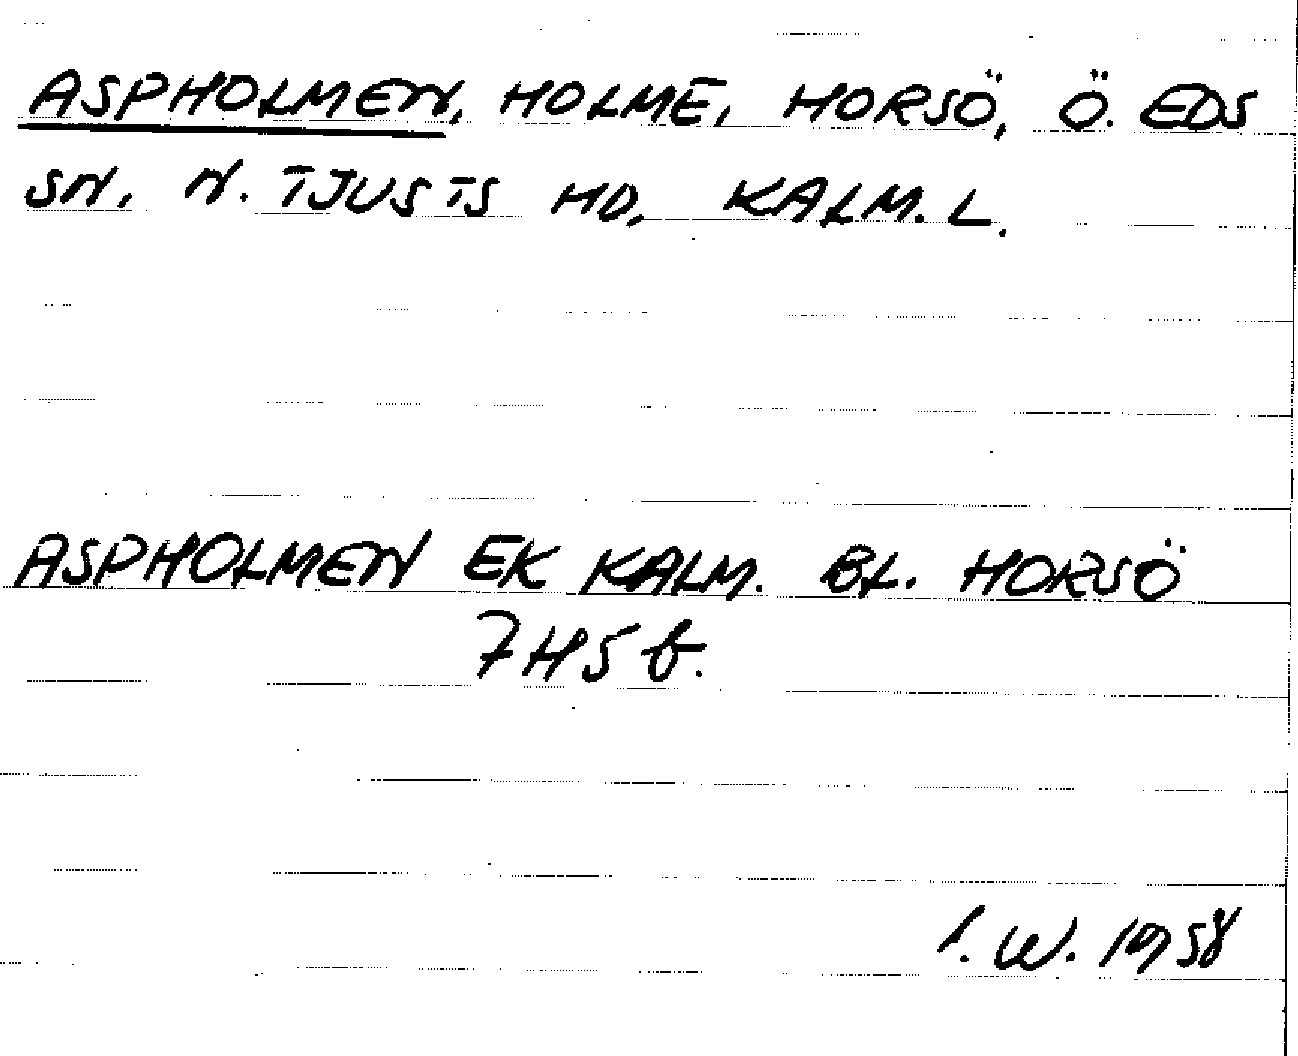 ASPHOLMEN, HOLME, HORSÖ, Ö. EDS
SN. N. TJUSTS HD, KALM. L.
ASPHOLMEN EK KALM. BL. HORSÖ
7H5b.
I. W. 1958